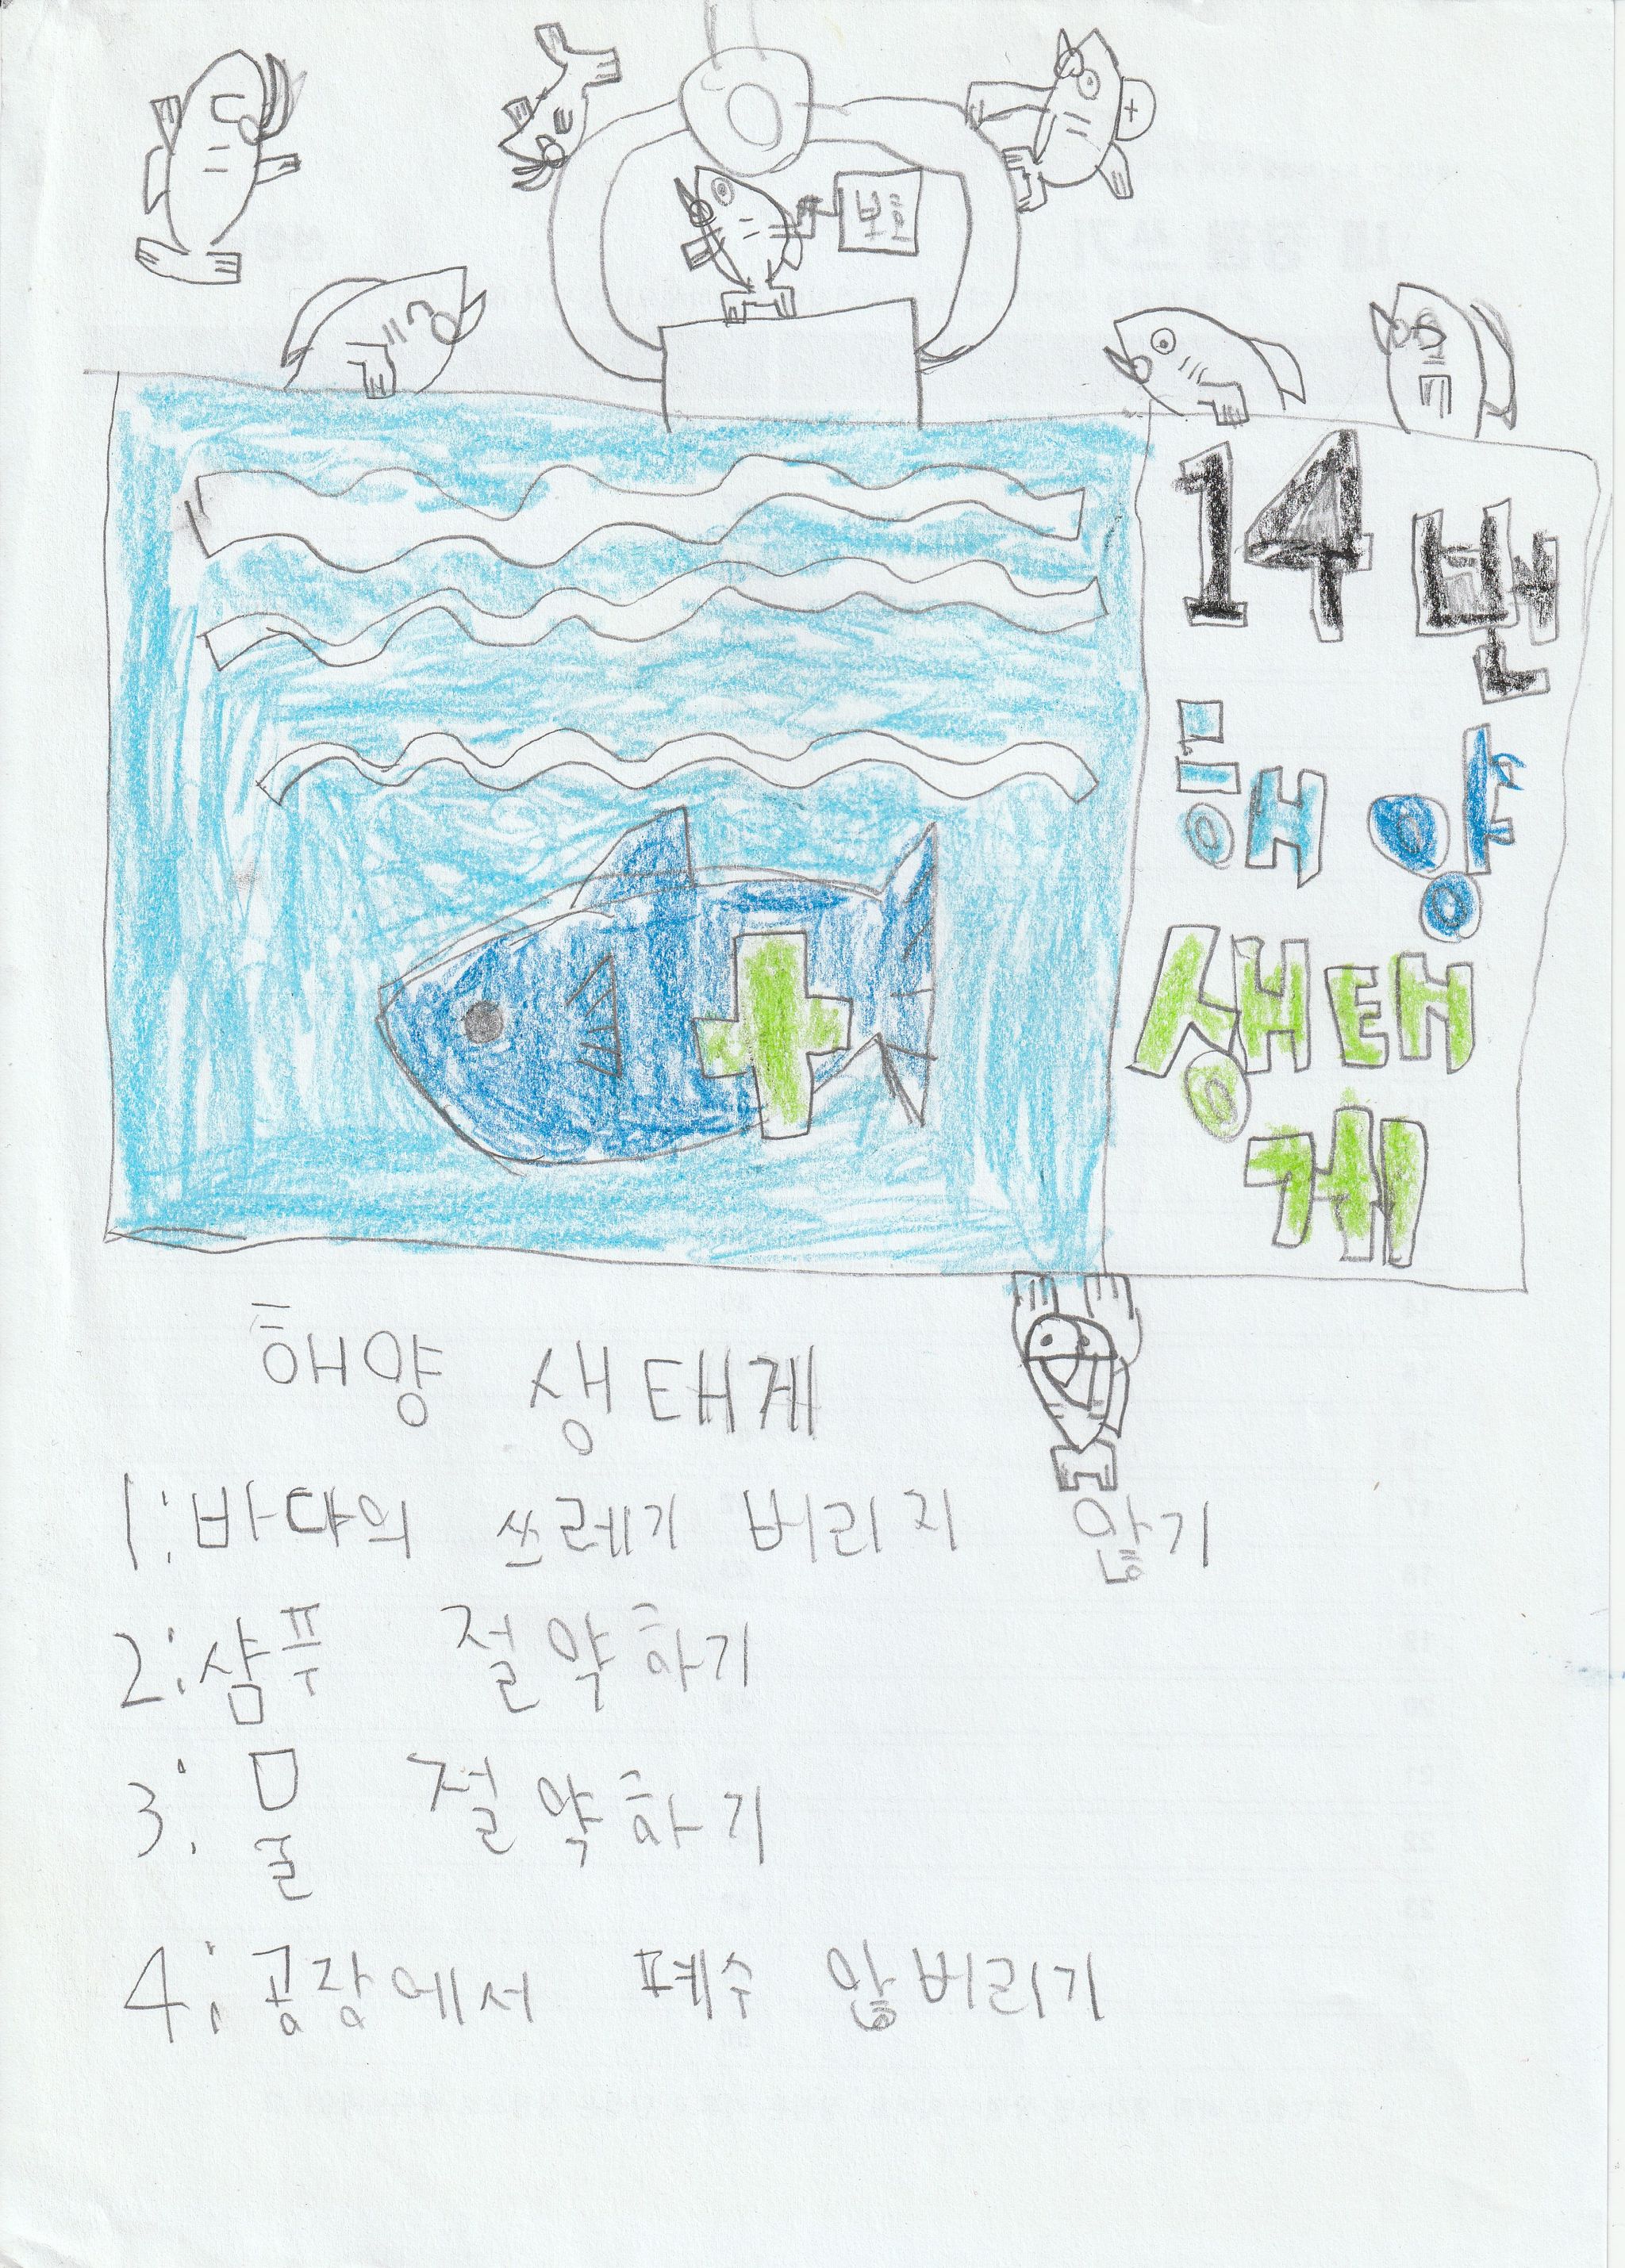 보호
14 번
해양
생태
계
해양 생태계
1: 바다의 쓰레기 버리지 않기
2: 샴푸 절약하기
3: 물 절약하기
4: 공장에서 폐수 않버리기